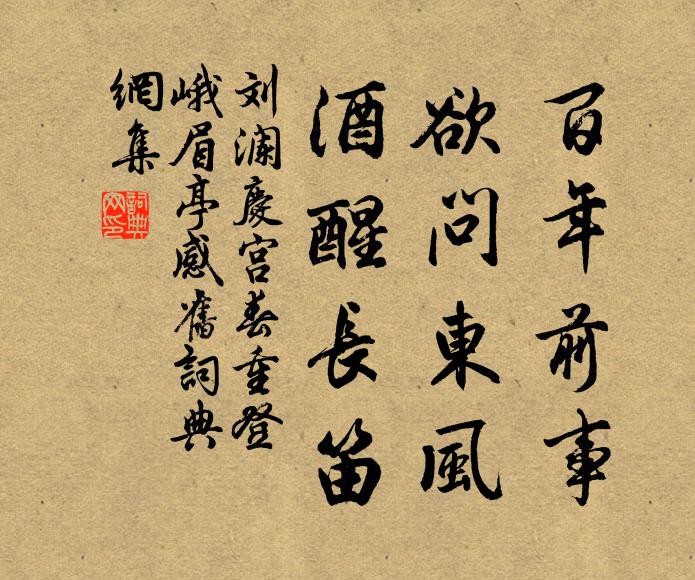 百年前事
欲問東風
酒醒長笛
刘瀾慶宮春重登
峨眉亭感舊詞典
網集
詞典網印